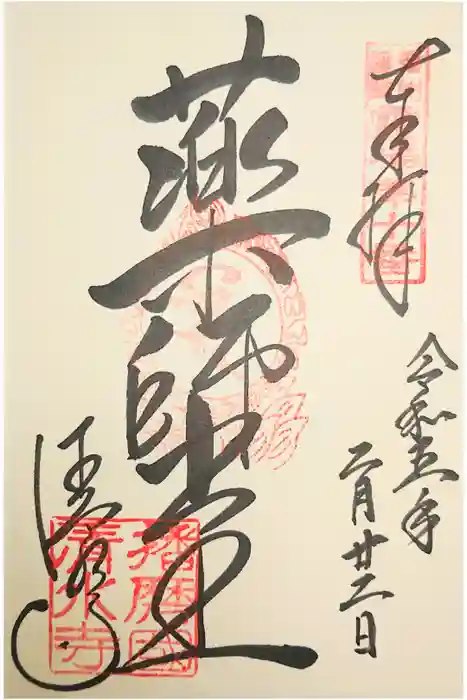 奉拝
令和五年
二月廿三日
藥師堂
清水寺
播磨國
清水寺